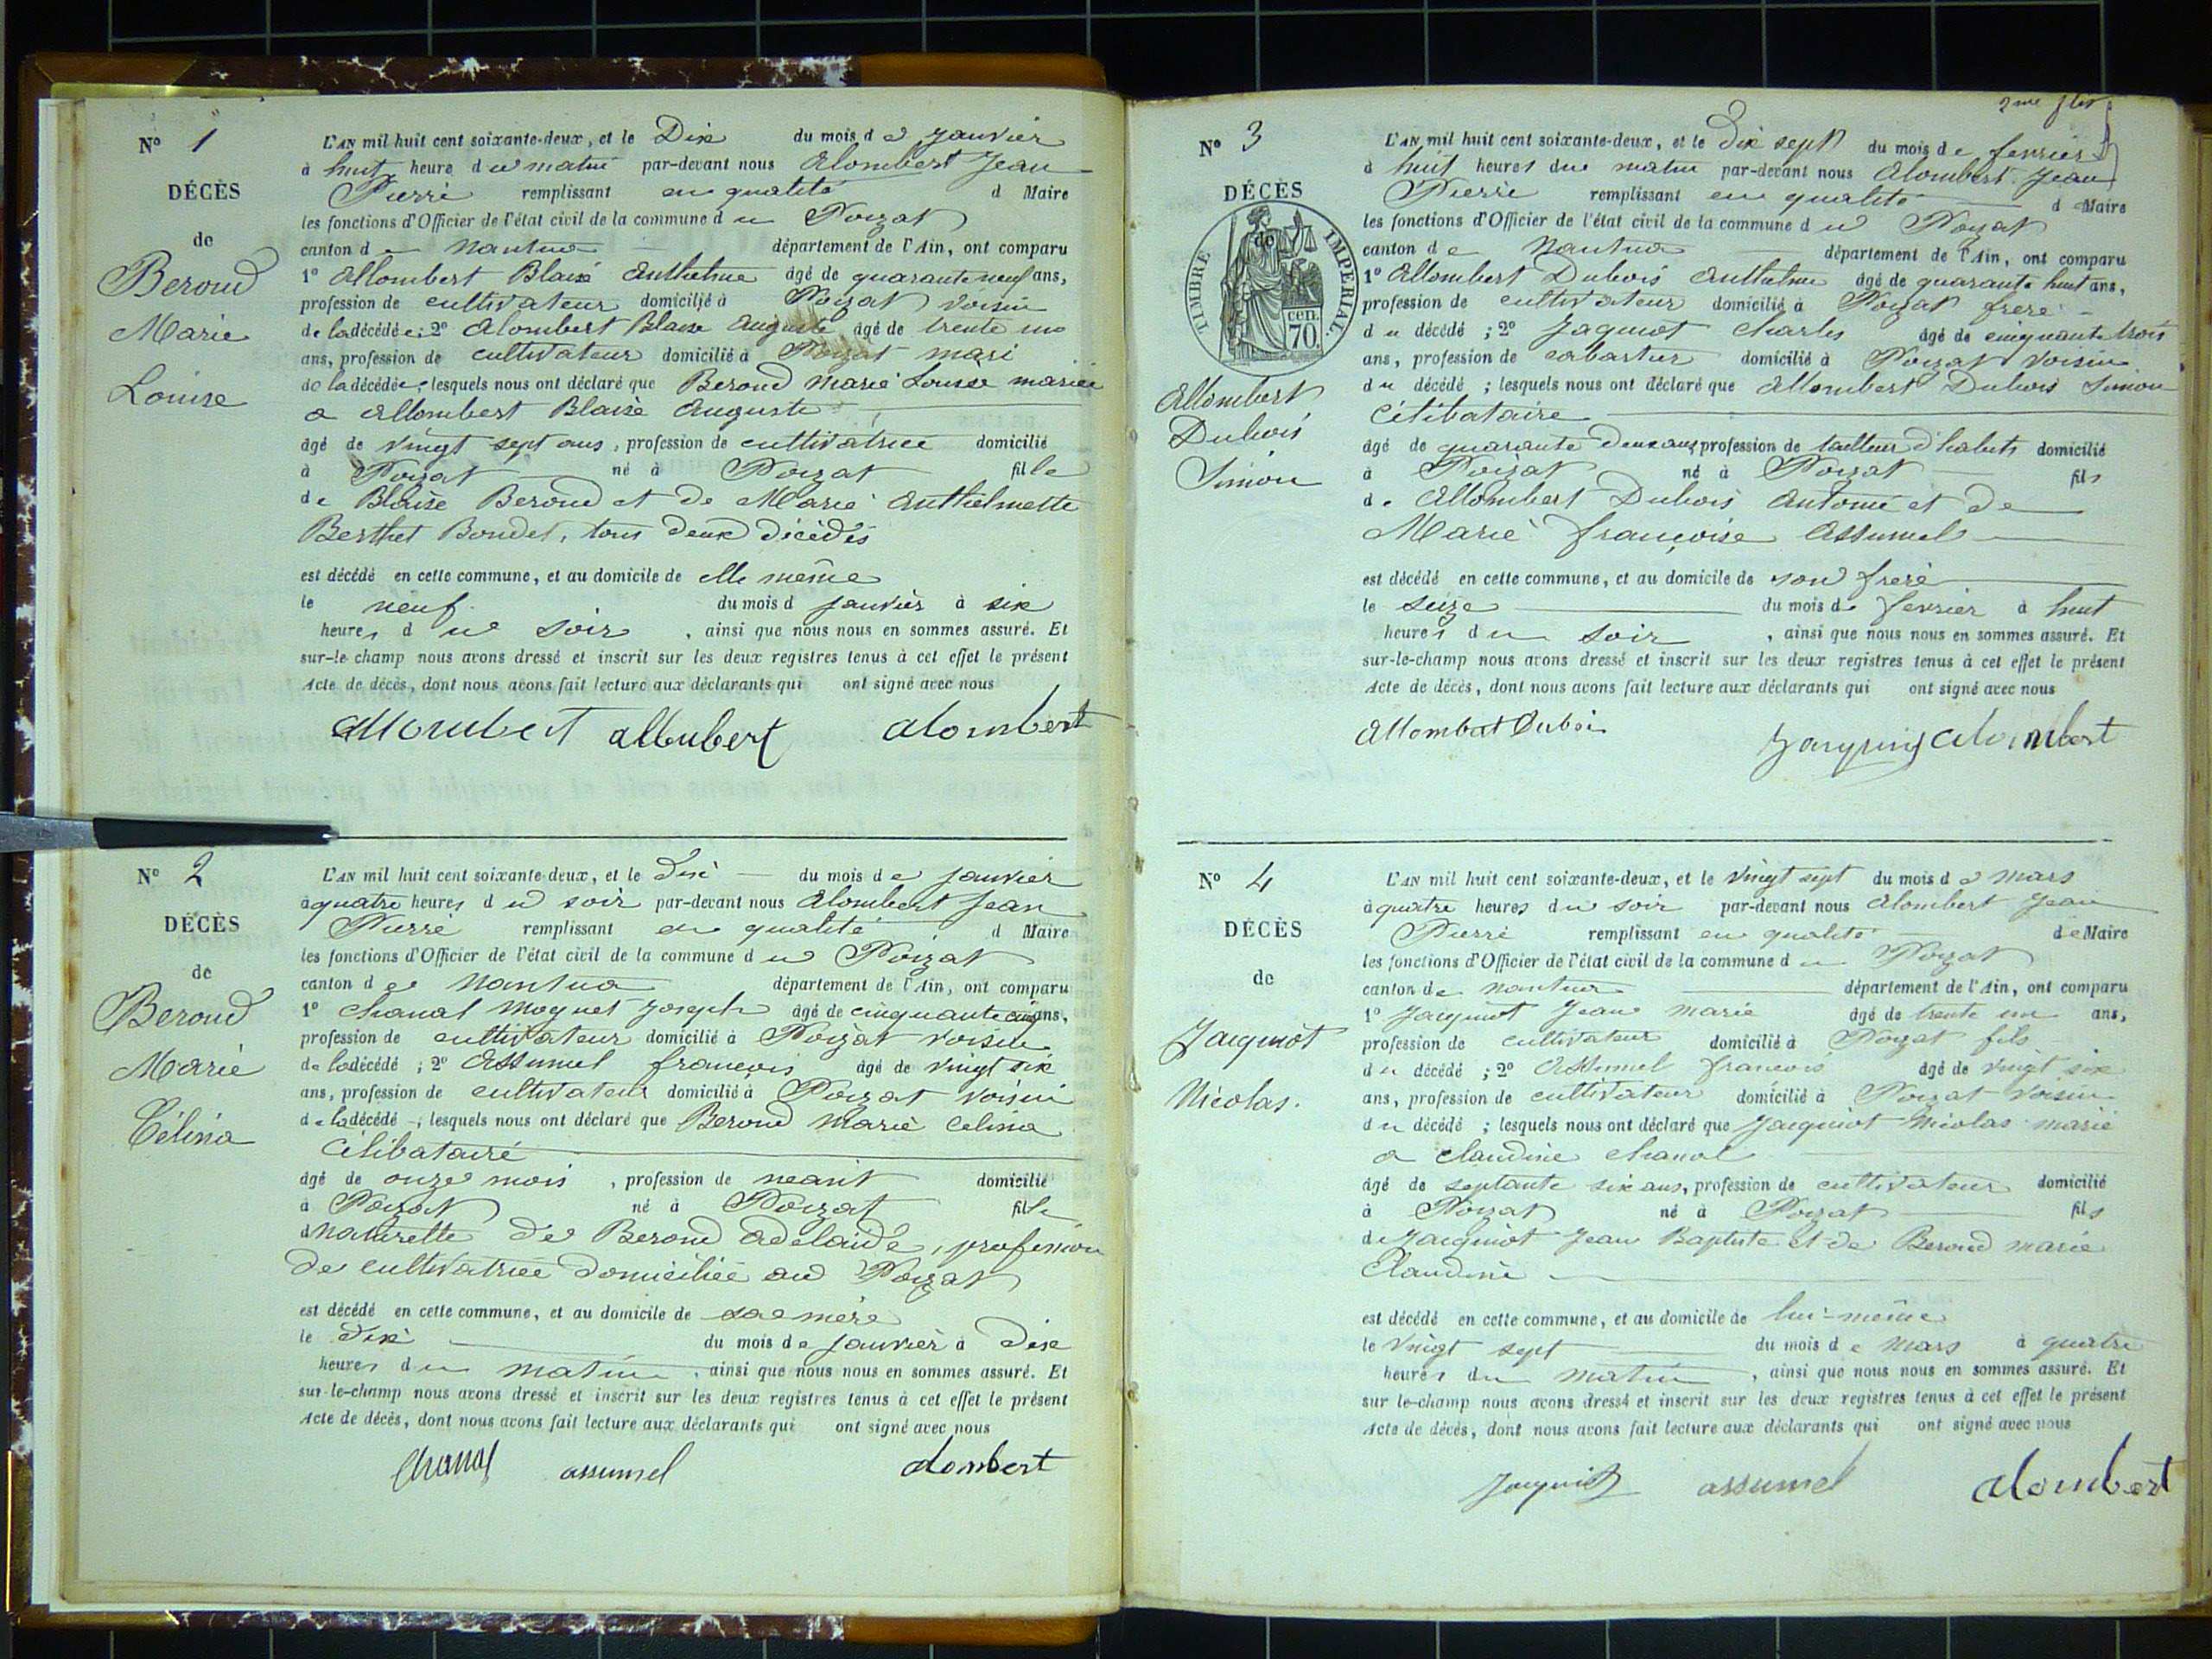 N° 1
DÉCÈS
de
Beroud
Marie
Louise
L'AN mil huit cent soixante-deux, et le Dix du mois de janvier
à huit heure du matin par-devant nous Alombert Jean
Pierre remplissant en qualité d Maire
les fonctions d'Officier de l'état civil de la commune du Poizat
canton de Nantua département de l'Ain, ont comparu
1° Allombert Blaise Anthelme âgé de quarante neuf ans,
profession de cultivateur domicilié à Poizat voisin
de la décédée; 2° Alombert Blaise Auguste âgé de trente un
ans, profession de cultivateur domicilié à Poizat mari
de la décédée; lesquels nous ont déclaré que Beroud Marie Louise mariée
a Allombert Blaise Auguste
âgé de vingt sept ans, profession de cultivatrice domicilié
à Poizat né à Poizat fille
de Blaise Beroud et de Marie Anthelmette
Berthet Bondet, tous deux décédés
est décédé en cette commune, et au domicile de elle même
le neuf du mois d janvier à six
heures du soir, ainsi que nous nous en sommes assuré. Et
sur-le-champ nous avons dressé et inscrit sur les deux registres tenus à cet effet le présent
Acte de décès, dont nous avons fait lecture aux déclarants qui ont signé avec nous
allombert allubert alombert
N° 2
DÉCÈS
de
Beroud
Marie
Célina
L'AN mil huit cent soixante-deux, et le dix du mois de janvier
à quatre heures du soir par-devant nous Alombert Jean
Pierre remplissant en qualité d Maire
les fonctions d'Officier de l'état civil de la commune du Poizat
canton de Nantua département de l'Ain, ont comparu
1° Chanal Moquet Joseph âgé de cinquante cinq ans,
profession de cultivateur domicilié à Poizat voisin
de la décédé; 2° Assumel françois âgé de vingt six
ans, profession de cultivateur domicilié à Poizat voisin
de la décédé; lesquels nous ont déclaré que Beroud Marie Celina
Célibataire
âgé de onze mois, profession de neant domicilié
à Poizat né à Poizat fille
d naturelle de Beroud Adelaide, profession
de cultivatrice domiciliée au Poizat
est décédé en cette commune, et au domicile de sa mère
le dix du mois de janvier à dix
heures du matin, ainsi que nous nous en sommes assuré. Et
sur-le-champ nous avons dressé et inscrit sur les deux registres tenus à cet effet le présent
Acte de décès, dont nous avons fait lecture aux déclarants qui ont signé avec nous
Chanal assumel alombert
N° 3
DÉCÈS
de
TIMBRE IMPÉRIAL.
70 cen.
Allombert
Dubois
Simon
L'AN mil huit cent soixante-deux, et le Dix sept du mois de fevrier
à huit heures du matin par-devant nous Alombert Jean
Pierre remplissant en qualité d Maire
les fonctions d'Officier de l'état civil de la commune du Poizat
canton de Nantua département de l'Ain, ont comparu
1° Allombert Dubois Anthelme âgé de quarante huit ans,
profession de cultivateur domicilié à Poizat frere
du décédé; 2° Jaquiot Charles âgé de cinquante trois
ans, profession de cabartier domicilié à Poizat voisin
du décédé; lesquels nous ont déclaré que Allombert Dubois Simon
Célibataire
âgé de quarante deux ans, profession de tailleur d'habits domicilié
à Poizat né à Poizat fils
de Allombert Dubois Antoine et de
Marie françoise Assumel
est décédé en cette commune, et au domicile de son frere
le seize du mois de fevrier à huit
heures du soir, ainsi que nous nous en sommes assuré. Et
sur-le-champ nous avons dressé et inscrit sur les deux registres tenus à cet effet le présent
Acte de décès, dont nous avons fait lecture aux déclarants qui ont signé avec nous
Allombert Dubois alombert
N° 4
DÉCÈS
de
Jacquiot
Nicolas.
L'AN mil huit cent soixante-deux, et le vingt sept du mois de mars
à quatre heures du soir par-devant nous Alombert Jean
Pierre remplissant en qualité de Maire
les fonctions d'Officier de l'état civil de la commune du Poizat
canton de nantua département de l'Ain, ont comparu
1° Jacquiot Jean Marie âgé de trente un ans,
profession de cultivateur domicilié à Poizat fils
du décédé; 2° Assumel francois âgé de vingt six
ans, profession de cultivateur domicilié à Poizat voisin
du décédé; lesquels nous ont déclaré que Jacquiot Nicolas marié
a Claudine Chanal
âgé de septante six ans, profession de cultivateur domicilié
à Poizat né à Poizat fils
de Jacquiot Jean Baptiste et de Beroud marie
Claudine
est décédé en cette commune, et au domicile de lui-même
le vingt sept du mois de mars à quatre
heures du matin, ainsi que nous nous en sommes assuré. Et
sur-le-champ nous avons dressé et inscrit sur les deux registres tenus à cet effet le présent
Acte de décès, dont nous avons fait lecture aux déclarants qui ont signé avec nous
Jaquiot assumel alombert